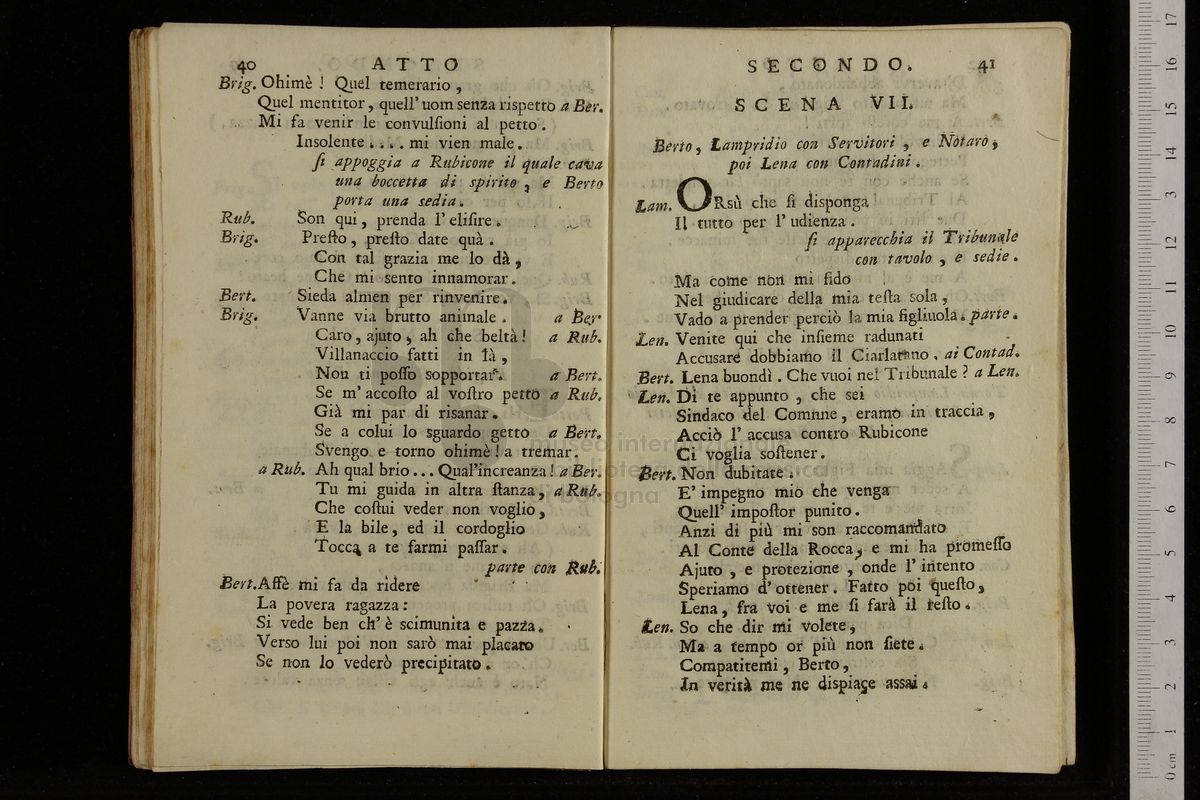 40 ATTO
Brig. Ohimè ! Quel temerario ,
Quel mentitor, quell' uom senza rispetto a Ber.
Mi fa venir le convulſioni al petto.
Insolente.... mi vien male.
ſi appoggia a Rubicone il quale cava
una boccetta di spirito, e Berto
porta una sedia.
Rub. Son qui, prenda l' eliſire.
Brig. Preſto, preſto date quà.
Con tal grazia me lo dà,
Che mi sento innamorar.
Bert. Sieda almen per rinvenire.
Brig. Vanne via brutto animale. a Ber.
Caro, ajuto, ah che beltà! a Rub.
Villanaccio fatti in là,
Non ti poſſo sopportar. a Bert.
Se m' accoſto al voſtro petto a Rub.
Già mi par di risanar.
Se a colui lo sguardo getto a Bert.
Svengo e torno ohimè! a tremar.
a Rub. Ah qual brio... Qual'increanza! a Ber.
Tu mi guida in altra ſtanza, a Rub.
Che coſtui veder non voglio,
E la bile, ed il cordoglio
Tocca a te farmi paſſar.
parte con Rub.
Bert. Affè mi fa da ridere
La povera ragazza:
Si vede ben ch' è scimunita e pazza.
Verso lui poi non sarò mai placato
Se non lo vederò precipitato.
SECONDO. 41
SCENA VII.
Berto, Lampridio con Servitori, e Notaro,
poi Lena con Contadini.
Lam. ORsù che ſi disponga
Il tutto per l' udienza.
ſi apparecchia il Tribunale
con tavolo, e sedie.
Ma come non mi fido
Nel giudicare della mia teſta sola,
Vado a prender perciò la mia figliuola. parte.
Len. Venite qui che inſieme radunati
Accusare dobbiamo il Ciarlatano. ai Contad.
Bert. Lena buondì. Che vuoi nel Tribunale? a Len.
Len. Di te appunto, che sei
Sindaco del Comune, eramo in traccia,
Acciò l' accusa contro Rubicone
Ci voglia soſtener.
Bert. Non dubitate.
E' impegno mio che venga
Quell' impoſtor punito.
Anzi di più mi son raccomandato
Al Conte della Rocca, e mi ha promeſſo
Ajuto, e protezione, onde l' intento
Speriamo d' ottener. Fatto poi queſto,
Lena, fra voi e me ſi farà il reſto.
Len. So che dir mi volete,
Ma a tempo or più non ſiete.
Compatitemi, Berto,
In verità me ne dispiace assai.
museo internazionale
e biblioteca della musica
di bologna